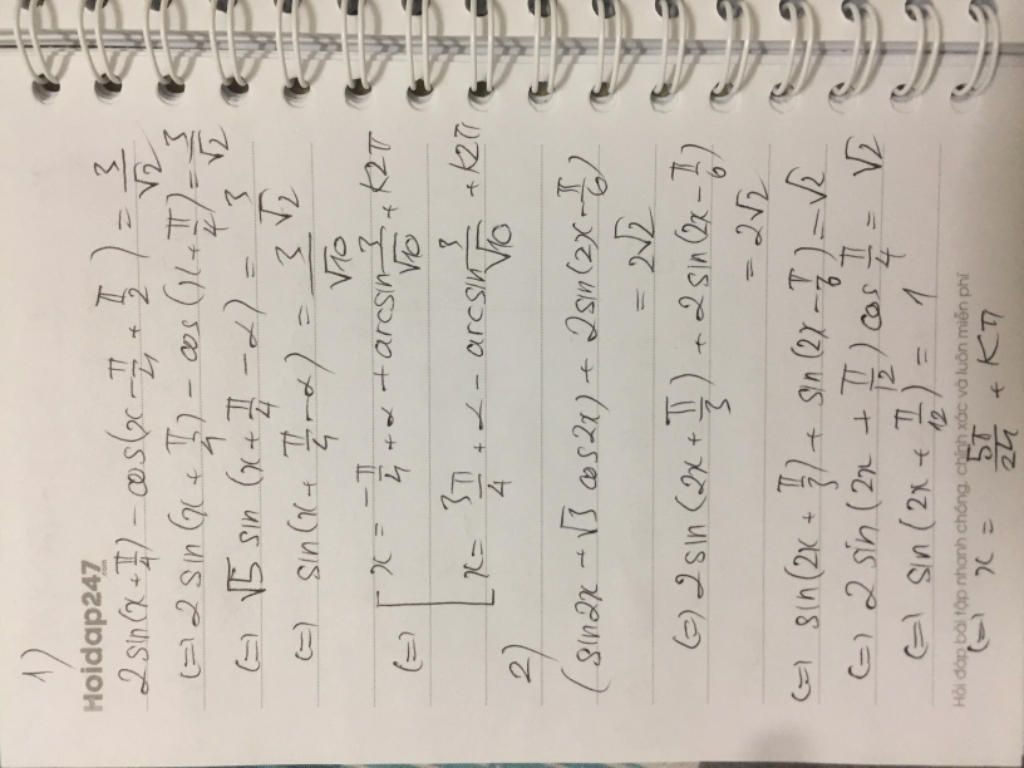 1)
Hoidap247
.com
2 sin(x + π/4) - cos(x - π/4 + π/2) = 3/√2
(=) 2 sin(x + π/4) - cos(x + π/4) = 3/√2
(=) √5 sin (x + π/4 - α) = 3/√2
(=) sin(x + π/4 - α) = 3√2/√10
(=) [ x = -π/4 + α + arcsin 3/√10 + k2π
x = 3π/4 + α - arcsin 3/√10 + k2π
2)
(sin2x + √3 cos2x) + 2sin(2x - π/6)
= 2√2
(=) 2 sin(2x + π/3) + 2 sin(2x - π/6)
= 2√2
(=) sin(2x + π/3) + sin(2x - π/6) = √2
(=) 2 sin(2x + π/12) cos π/4 = √2
(=) sin(2x + π/12) = 1
Hỏi đáp bài tập nhanh chóng, chính xác và luôn miễn phí
(=) x = 5π/24 + Kπ